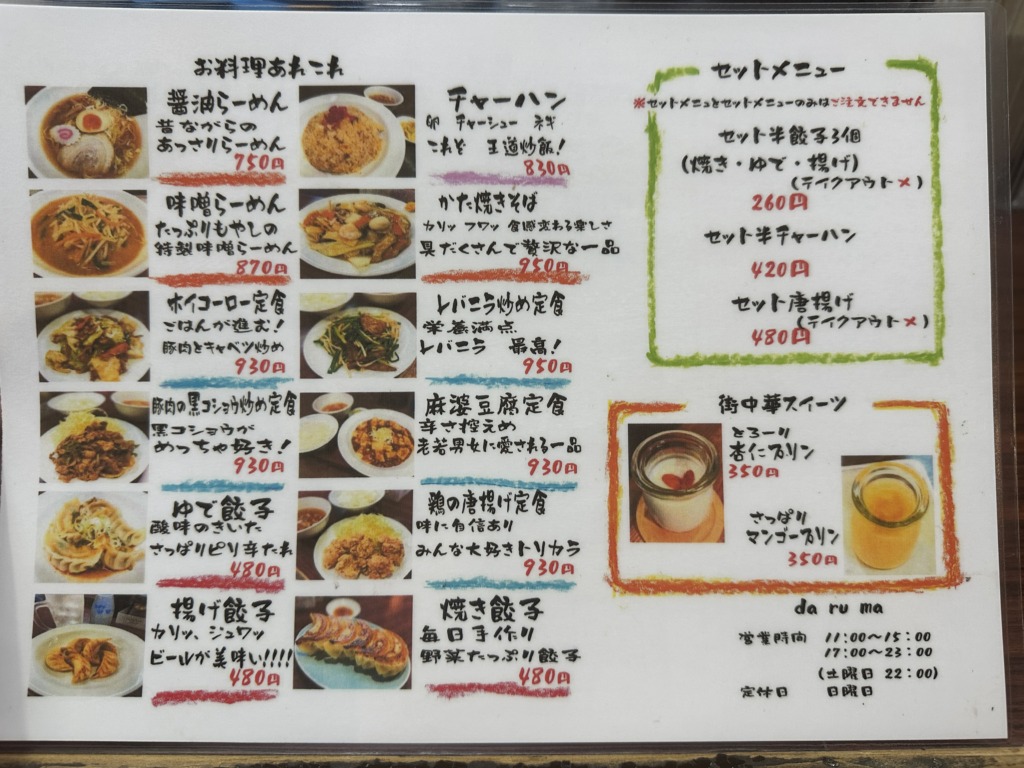 お料理あれこれ
醤油らーめん
昔ながらの
あっさりらーめん
750円
味噌らーめん
たっぷりもやしの
特製味噌らーめん
870円
ホイコーロー定食
ごはんが進む!
豚肉とキャベツ炒め
930円
豚肉の黒コショウ炒め定食
黒コショウが
めっちゃ好き!
930円
ゆで餃子
酸味のきいた
さっぱりピリ辛たれ
480円
揚げ餃子
カリッ、ジュワッ
ビールが美味い!!!!
480円
チャーハン
卵 チャーシュー ネギ
これぞ 王道炒飯!
830円
かた焼きそば
カリッ フワッ 食感変わる楽しさ
具だくさんで贅沢な一品
950円
レバニラ炒め定食
栄養満点
レバニラ 最高!
950円
麻婆豆腐定食
辛さ控えめ
老若男女に愛される一品
930円
鶏の唐揚げ定食
味に自信あり
みんな大好きトリカラ
930円
焼き餃子
毎日手作り
野菜たっぷり餃子
480円
セットメニュー
※セットメニュとセットメニューのみはご注文できません
セット半餃子3個
(焼き・ゆで・揚げ)
(テイクアウト×)
260円
セット半チャーハン
420円
セット唐揚げ
(テイクアウト×)
480円
街中華スイーツ
とろーり
杏仁プリン
350円
さっぱり
マンゴープリン
350円
da ru ma
営業時間 11:00~15:00
17:00~23:00
(土曜日 22:00)
定休日 日曜日